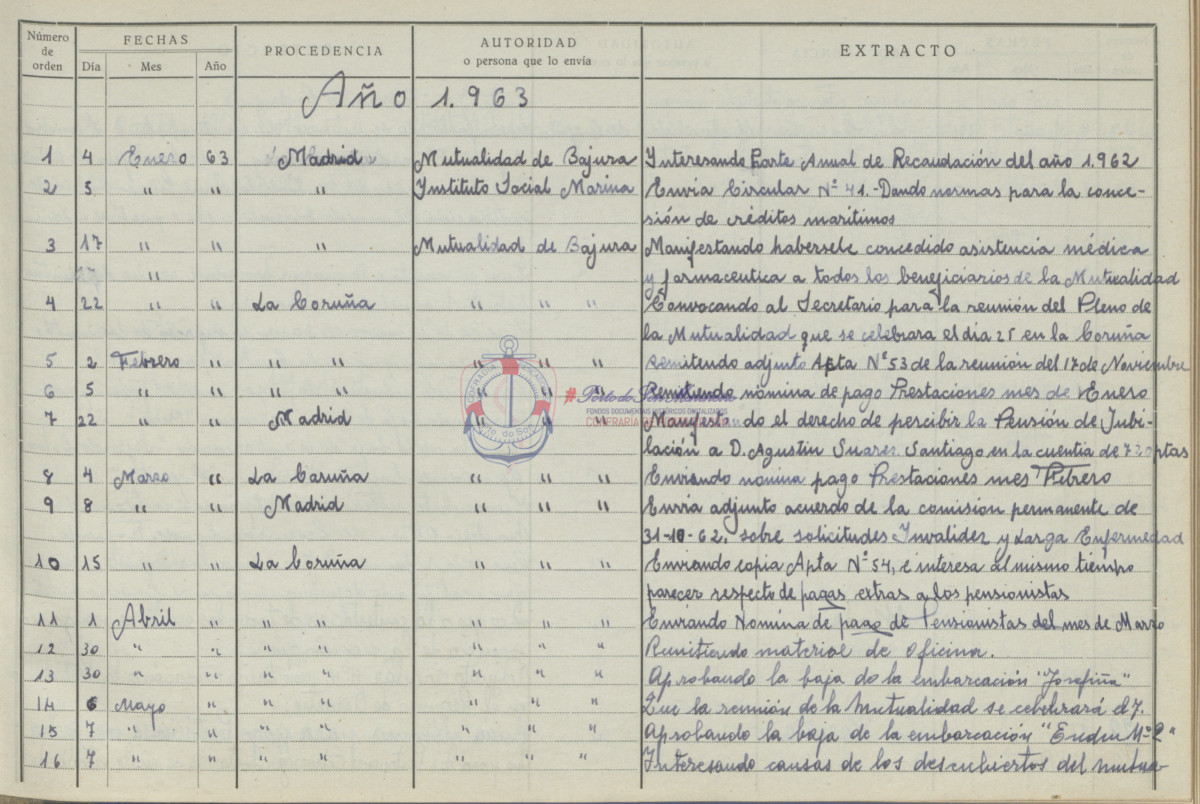 Número de orden FECHAS PROCEDENCIA AUTORIDAD o persona que lo envía EXTRACTO
Día Mes Año
Año 1.963
1 4 Enero 63 Madrid Mutualidad de Bajura Interesando Parte Anual de Recaudación del año 1.962
2 5 " " " Instituto Social Marina Envia Circular Nº 41.-Dando normas para la conce-
sión de créditos marítimos
3 17 " " " Mutualidad de Bajura Manifestando habersele concedido asistencia médica
17 " y farmaceutica a todos los beneficiarios de la Mutualidad
4 22 " " La Coruña " " " Convocando al Secretario para la reunión del Pleno de
la Mutualidad que se celebrara el día 25 en la Coruña
5 2 Febrero " " " " " " Remitendo adjunto Apta Nº 53 de la reunión del 17 de Noviembre
6 5 " " " " " " " Remitiendo nómina de pago Prestaciones mes de Enero
7 22 " " Madrid " " " Manifestando el derecho de percibir la Pensión de Jubi-
lación a D. Agustin Suares Santiago en la cuentia de 720 ptas
8 4 Marzo " La Coruña " " " Enviando nomina pago Prestaciones mes Febrero
9 8 " " Madrid " " " Envia adjunto acuerdo de la comisión permanente de
31-10-62, sobre solicitudes Invalidez y Larga Enfermedad
10 15 " " La Coruña " " " Enviando copia Apta Nº 54, e interesa al mismo tiempo
parecer respecto de pagas extras a los pensionistas
11 1 Abril " " " " " " Enviando Nomina de pago de Pensionistas del mes de Marzo
12 30 " " " " " " " Remitiendo material de oficina.
13 30 " " " " " " " Aprobando la baja de la embarcación "Josefiña"
14 6 Mayo " " " " " " Que la reunión de la Mutualidad se celebrará el 7.
15 7 " " " " " " " Aprobando la baja de la embarcación " Nº 2"
16 7 " " " " " " " Interesando causas de los descubiertos del mutua-
#Porto do Son
FONDOS DOCUMENTAIS HISTÓRICOS DIGITALIZADOS
COFRARÍA
Porto do Son